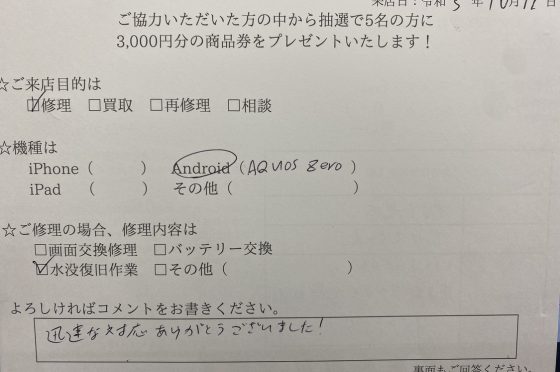 来店日：令和5年10月12日
ご協力いただいた方の中から抽選で5名の方に
3,000円分の商品券をプレゼントいたします！
☆ご来店目的は
☑修理 □買取 □再修理 □相談
☆機種は
iPhone（ ） Android（AQUOS zero）
iPad （ ） その他（ ）
☆ご修理の場合、修理内容は
□画面交換修理 □バッテリー交換
☑水没復旧作業 □その他（ ）
よろしければコメントをお書きください。
迅速な対応ありがとうございました！
裏面もご回答ください。